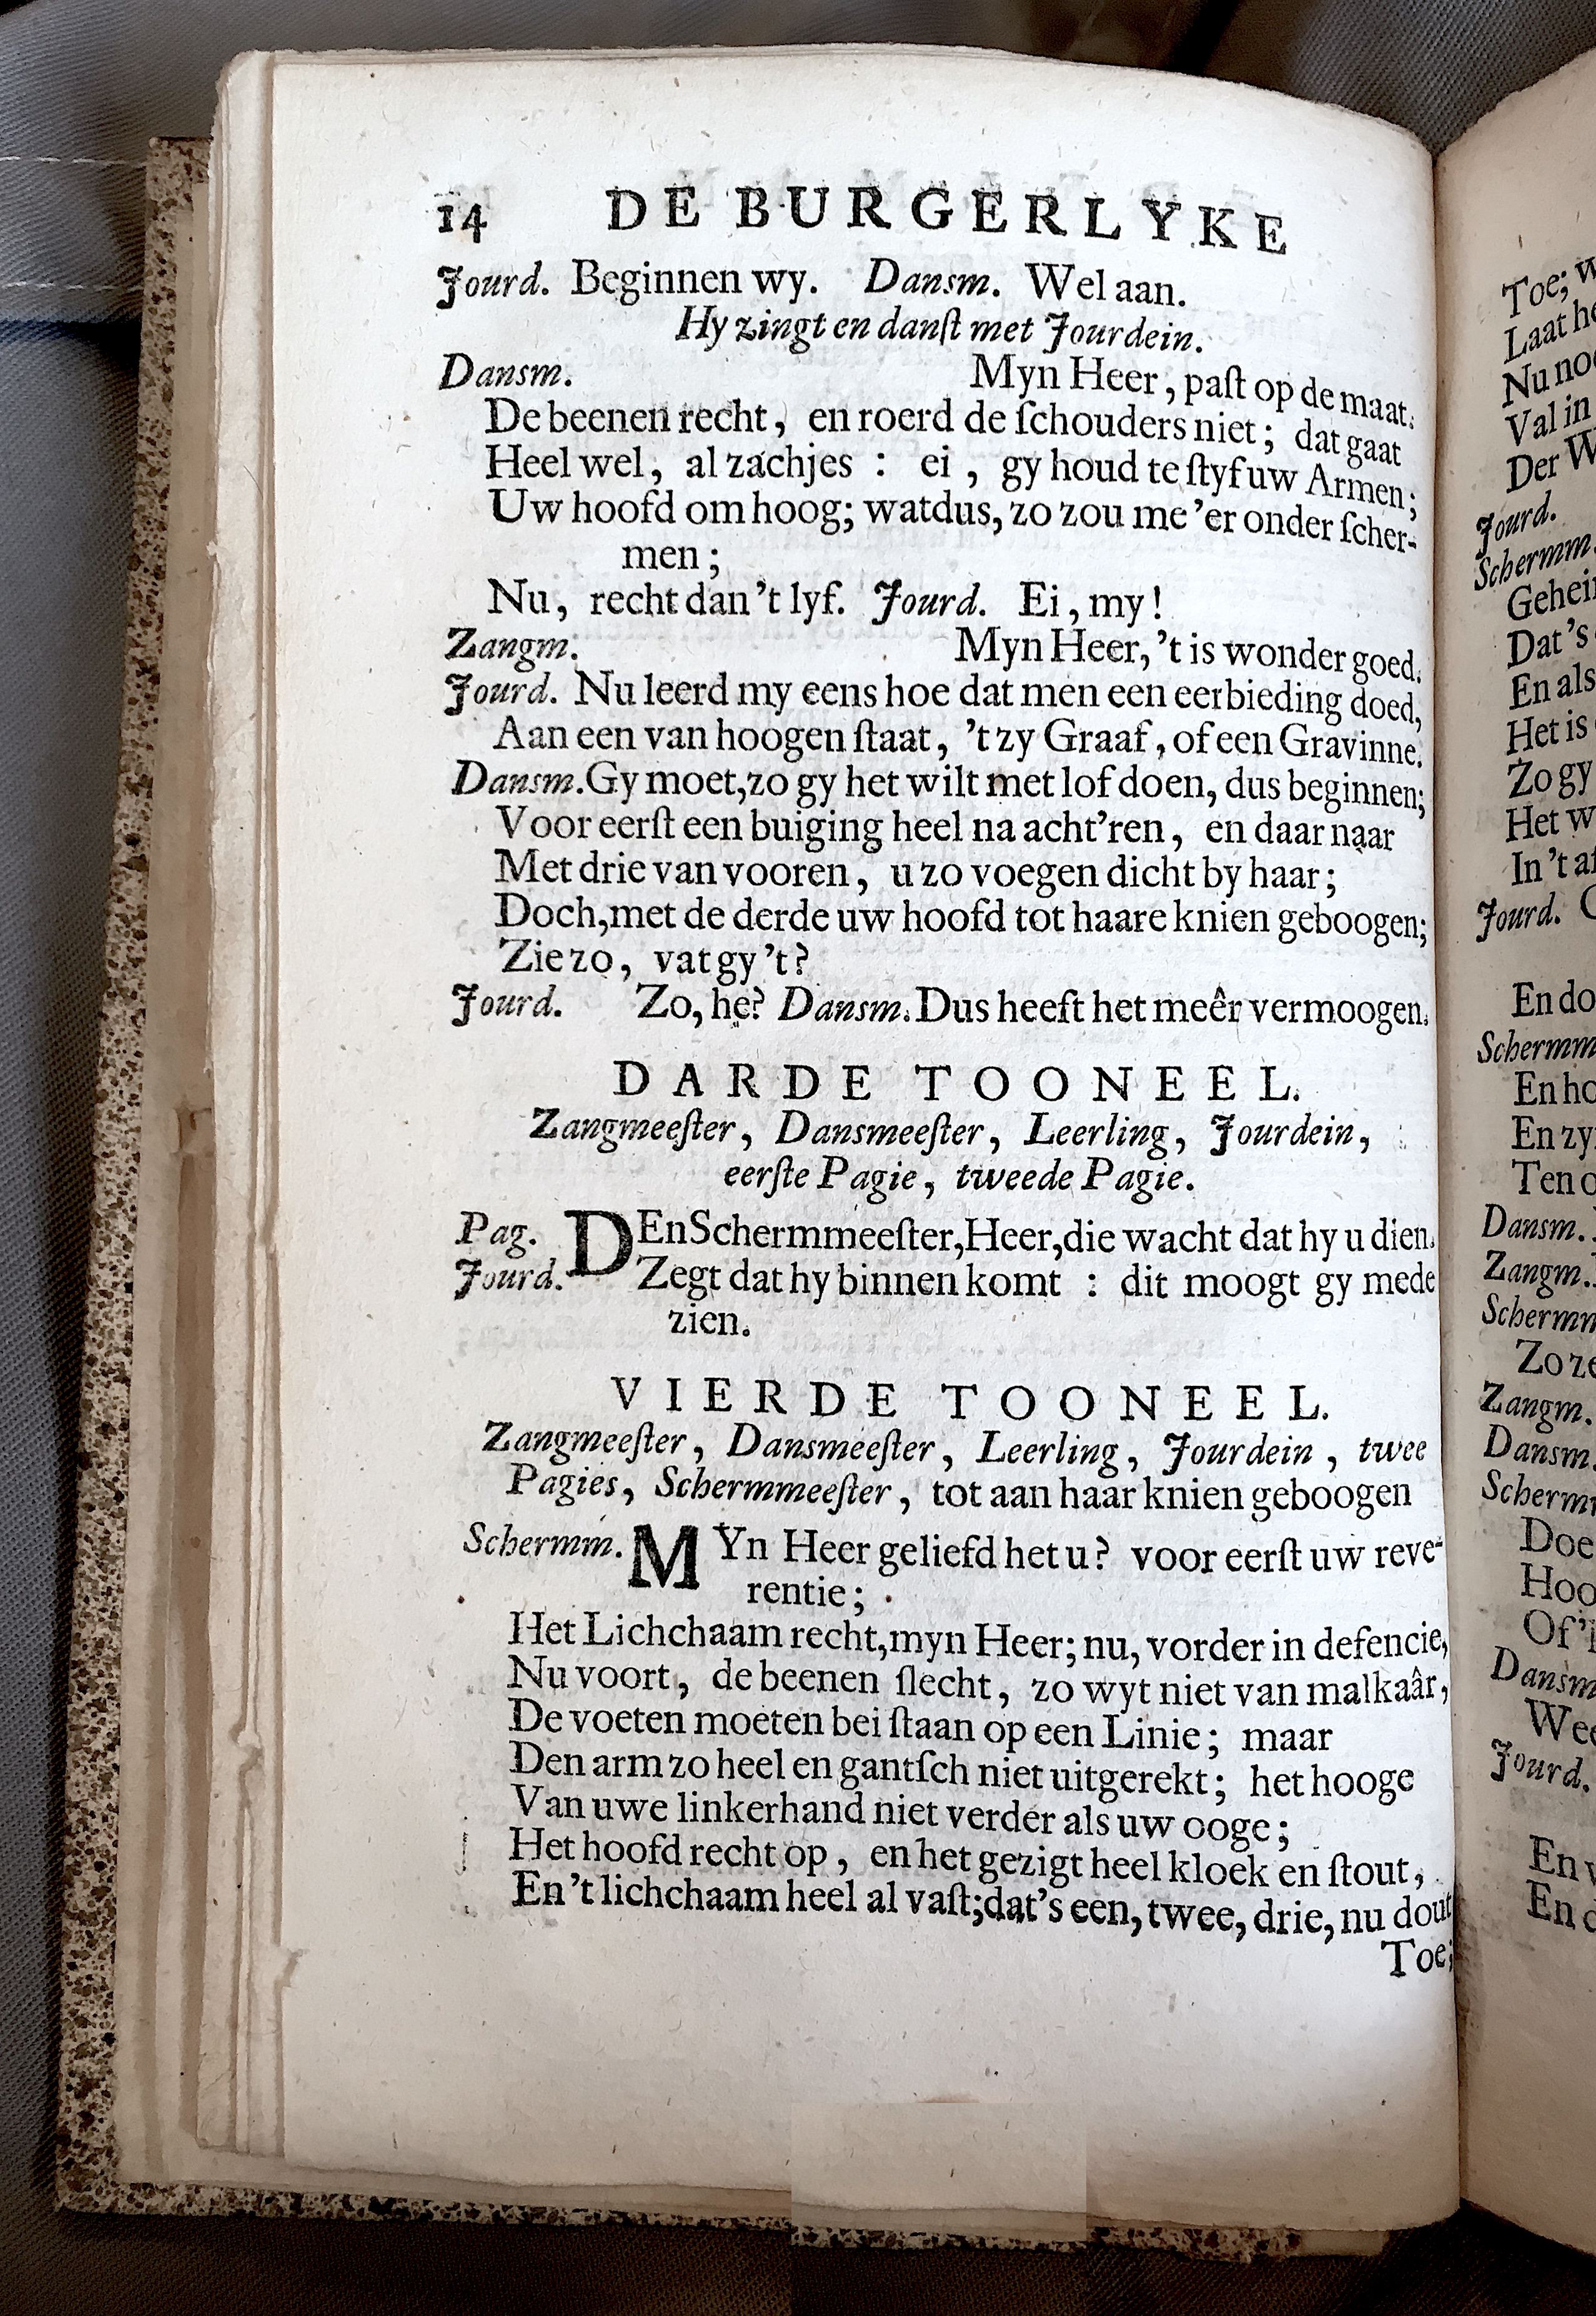 14 DE BURGERLYKE
Jourd. Beginnen wy. Dansm. Wel aan.
Hy zingt en danſt met Jourdein.
Dansm. Myn Heer, paſt op de maat.
De beenen recht, en roerd de ſchouders niet; dat gaat
Heel wel, al zachjes : ei, gy houd te ſtyf uw Armen;
Uw hoofd om hoog; wat dus, zo zou me 'er onder ſcher-
men;
Nu, recht dan 't lyf. Jourd. Ei, my!
Zangm. Myn Heer, 't is wonder goed.
Jourd. Nu leerd my eens hoe dat men een eerbieding doed,
Aan een van hoogen ſtaat, 't zy Graaf, of een Gravinne.
Dansm. Gy moet, zo gy het wilt met lof doen, dus beginnen;
Voor eerſt een buiging heel na acht'ren, en daar naar
Met drie van vooren, u zo voegen dicht by haar;
Doch, met de derde uw hoofd tot haare knien geboogen;
Zie zo, vat gy 't?
Jourd. Zo, he? Dansm. Dus heeft het meêr vermoogen.
DARDE TOONEEL.
Zangmeeſter, Dansmeeſter, Leerling, Jourdein,
eerſte Pagie, tweede Pagie.
Pag. DEn Schermmeeſter, Heer, die wacht dat hy u dien.
Jourd. Zegt dat hy binnen komt : dit moogt gy mede
zien.
VIERDE TOONEEL.
Zangmeeſter, Dansmeeſter, Leerling, Jourdein, twee
Pagies, Schermmeeſter, tot aan haar knien geboogen
Schermm. MYn Heer geliefd het u? voor eerſt uw reve-
rentie;
Het Lichchaam recht, myn Heer; nu, vorder in defencie,
Nu voort, de beenen ſlecht, zo wyt niet van malkaâr,
De voeten moeten bei ſtaan op een Linie; maar
Den arm zo heel en gantſch niet uitgerekt; het hooge
Van uwe linkerhand niet verder als uw ooge;
Het hoofd recht op, en het gezigt heel kloek en ſtout,
En 't lichchaam heel al vaſt; dat's een, twee, drie, nu dout
Toe;
Toe;
Laat
Nu
Val in
Der
Jourd.
Schermm.
Dat's
En als
Het is
Zo gy
Het
In 't
Jourd.
En
Schermm
En
En
Ten
Dansm.
Zangm.
Schermm
Zo
Zangm.
Dansm.
Scherm
Doe
Of
Dansm
Jourd.
En
En